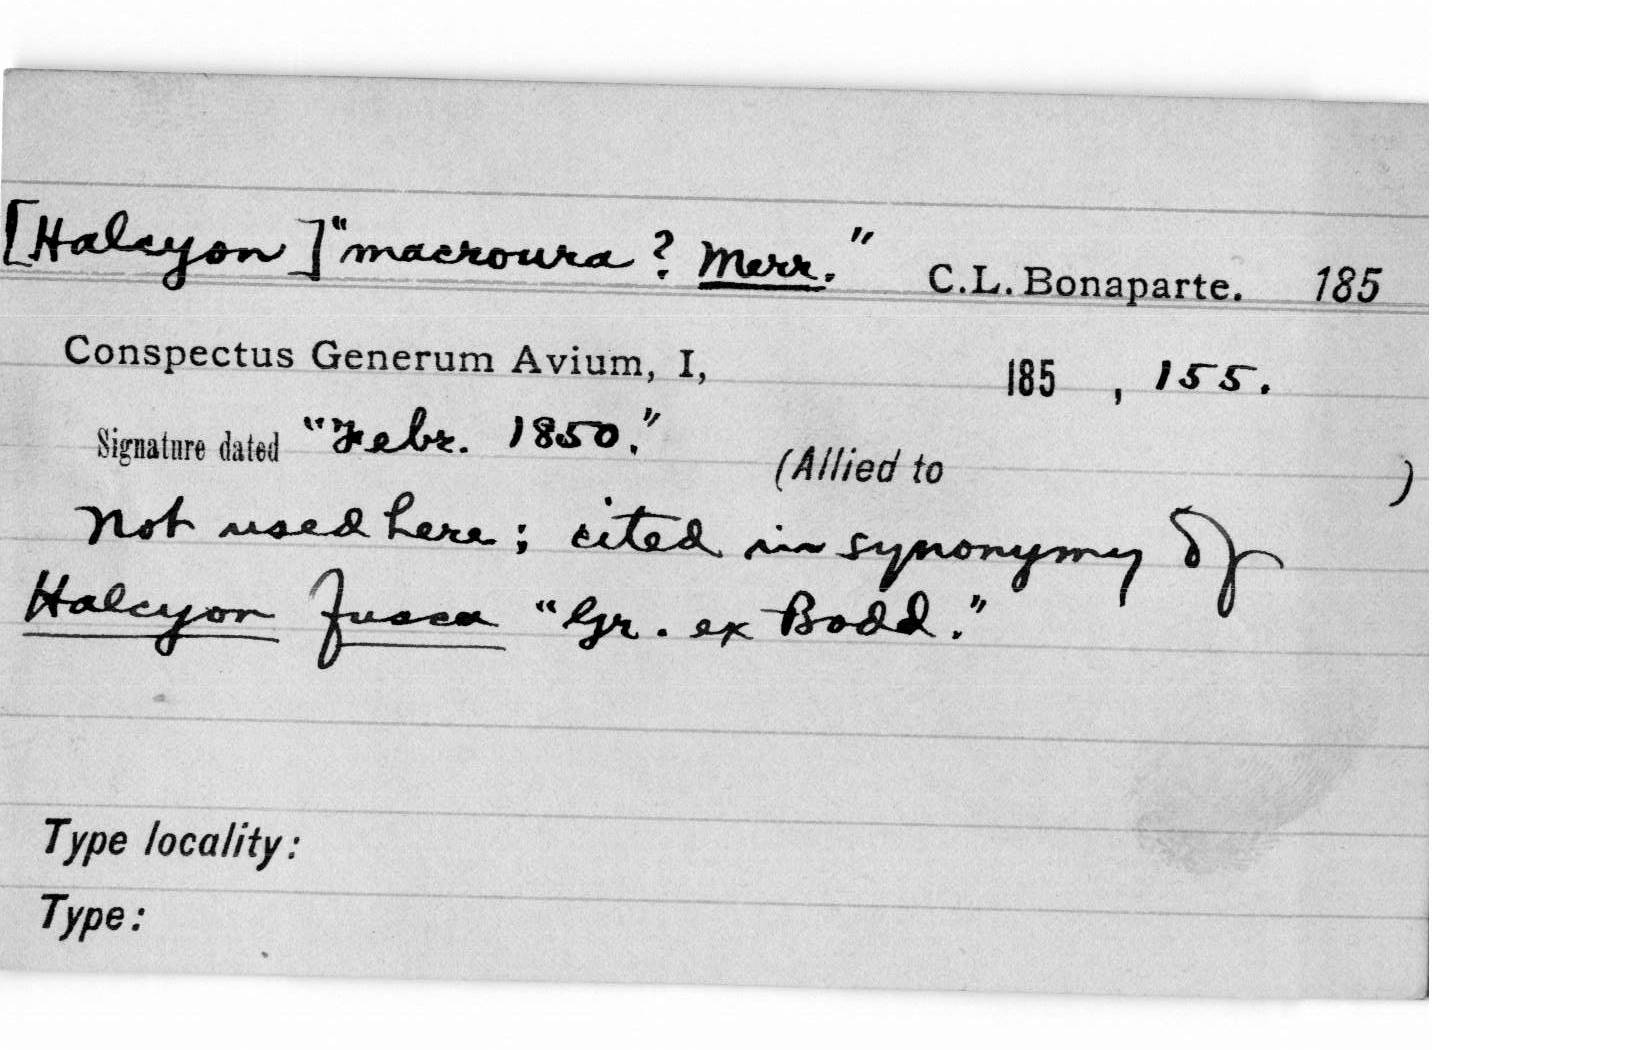 [Halcyon] "macroura ? Merr." C.L. Bonaparte. 185
Conspectus Generum Avium, I, 185 , 155.
Signature dated "Febr. 1850." (Allied to )
Not used here; cited in synonymy of
Halcyon fusca "Gr. ex Bodd."
Type locality:
Type: